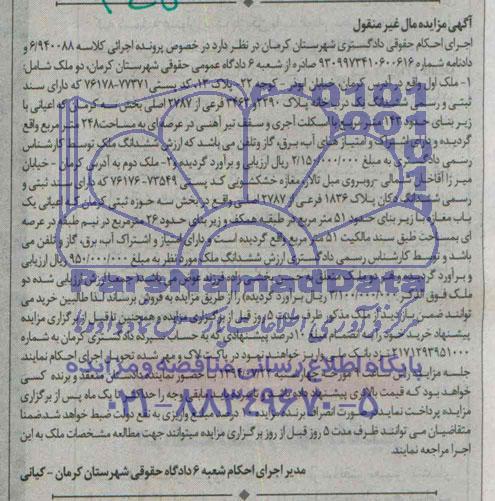 آگهی مزایده مال غیر منقول
اجرای احکام حقوقی دادگستری شهرستان کرمان در نظر دارد در خصوص پرونده اجرائی کلاسه ۶/۹۴۰۰۸۸ و
دادنامه شماره ۹۳۰۹۹۷۳۴۱۰۶۰۰۶۱۶ صادره از شعبه ۶ دادگاه عمومی حقوقی شهرستان کرمان، دو ملک شامل:
۱- ملک اول واقع در آدرس کرمان، خیابان ابوذر، کوچه ۲۲- پلاک ۱۳- کد پستی ۷۷۳۷۱-۷۶۱۷۸ که دارای سند
ثبتی و رسمی ششدانگ یک درب خانه پلاک ۲۲۹۰ و ۳۴۶۲ فرعی از ۲۷۸۷ اصلی بخش سه کرمان که اعیانی با
زیر بنای حدود ۱۴۳ متر مربع با اسکلت آجری و سقف تیر آهنی در عرصه ای به مساحت ۲۴۸ متر مربع واقع
گردیده و دارای اشتراک و امتیاز های آب، برق، گاز وتلفن می باشد که ارزش ششدانگ ملک توسط کارشناس
رسمی دادگستری به مبلغ ۲/۱۵۰/۰۰۰/۰۰۰ ریال ارزیابی و برآورد گردیده و ۲- ملک دوم به آدرس کرمان - خیابان
میرزا آقاخان شمالی -روبروی مبل تالار مغازه خشکشویی کد پستی ۷۳۵۴۹-۷۶۱۷۶ که دارای سند ثبتی و
رسمی ششدانگ دکان پلاک ۱۸۳۶ فرعی از ۲۷۸۷ اصلی واقع در بخش سه حوزه ثبتی کرمان که اعیانی یک
باب مغازه با زیر بنای حدود ۵۱ متر مربع در طبقه همکف و زیر بنای حدود ۲۶ مترمربع در نیم طبقه در عرصه
ای بمساحت طبق سند مالکیت ۵۱ متر مربع واقع گردیده است و دارای امتیاز و اشتراک آب، برق، گاز و تلفن می
باشد و توسط کارشناس رسمی دادگستری ارزش ششدانگ ملک مورد نظر به مبلغ ۹۵۰/۰۰۰/۰۰۰ ریال ارزیابی
و برآورد گردیده و هر دو ملک متعلق به حسین بخشی زاده فرزند عوض می باشد (جمعا ارزش ارزیابی شده دو
ملک فوق الذکر ۳/۱۰۰/۰۰۰/۰۰۰ ریال برآورد گردیده) را از طریق مزایده به فروش برساند لذا طالبین خرید می
توانند ضمن بازدید از ملک مذکور ظرف مدت ۵ روز قبل از برگزاری مزایده و همچنین تا قبل از برگزاری مزایده
پیشنهاد خرید خود را به انضمام مبلغ ۱۰ درصد پیشنهادی که به حساب سپرده دادگستری کرمان به شماره
۲۱۷۱۲۹۳۹۵۱۰۰۰ نزد بانک ملی واریز خواهند نمود در پاکت لاک و مهر شده تحویل اجرای احکام نمایند.
جلسه مزایده راس ساعت با حضور نماینده دادستان منعقد و برنده کسی
خواهد بود که قیمت بالاتری پیشنهاد داده باشد برنده مزایده مابقی وجه را حداکثر تا یک ماه پس از برگزاری
مزایده پرداخت نماید در صورت انصراف برنده مزایده ۱۰ درصد مبلغ واریزی به نفع دولت ضبط خواهد شد ضمنا
متقاضیان می توانند ظرف مدت ۵ روز قبل از روز برگزاری مزایده میتوانند جهت مطالعه مشخصات ملک به این
اجرا مراجعه نمایند
مدیر اجرای احکام شعبه ۶ دادگاه حقوقی شهرستان کرمان - کیانی
ParsNamadData
مرکز فرآوری اطلاعات پارس نماد داده ها
پایگاه اطلاع رسانی مناقصه و مزایده
۰۲۱-۸۸۳۴۹۶۷۰-۵